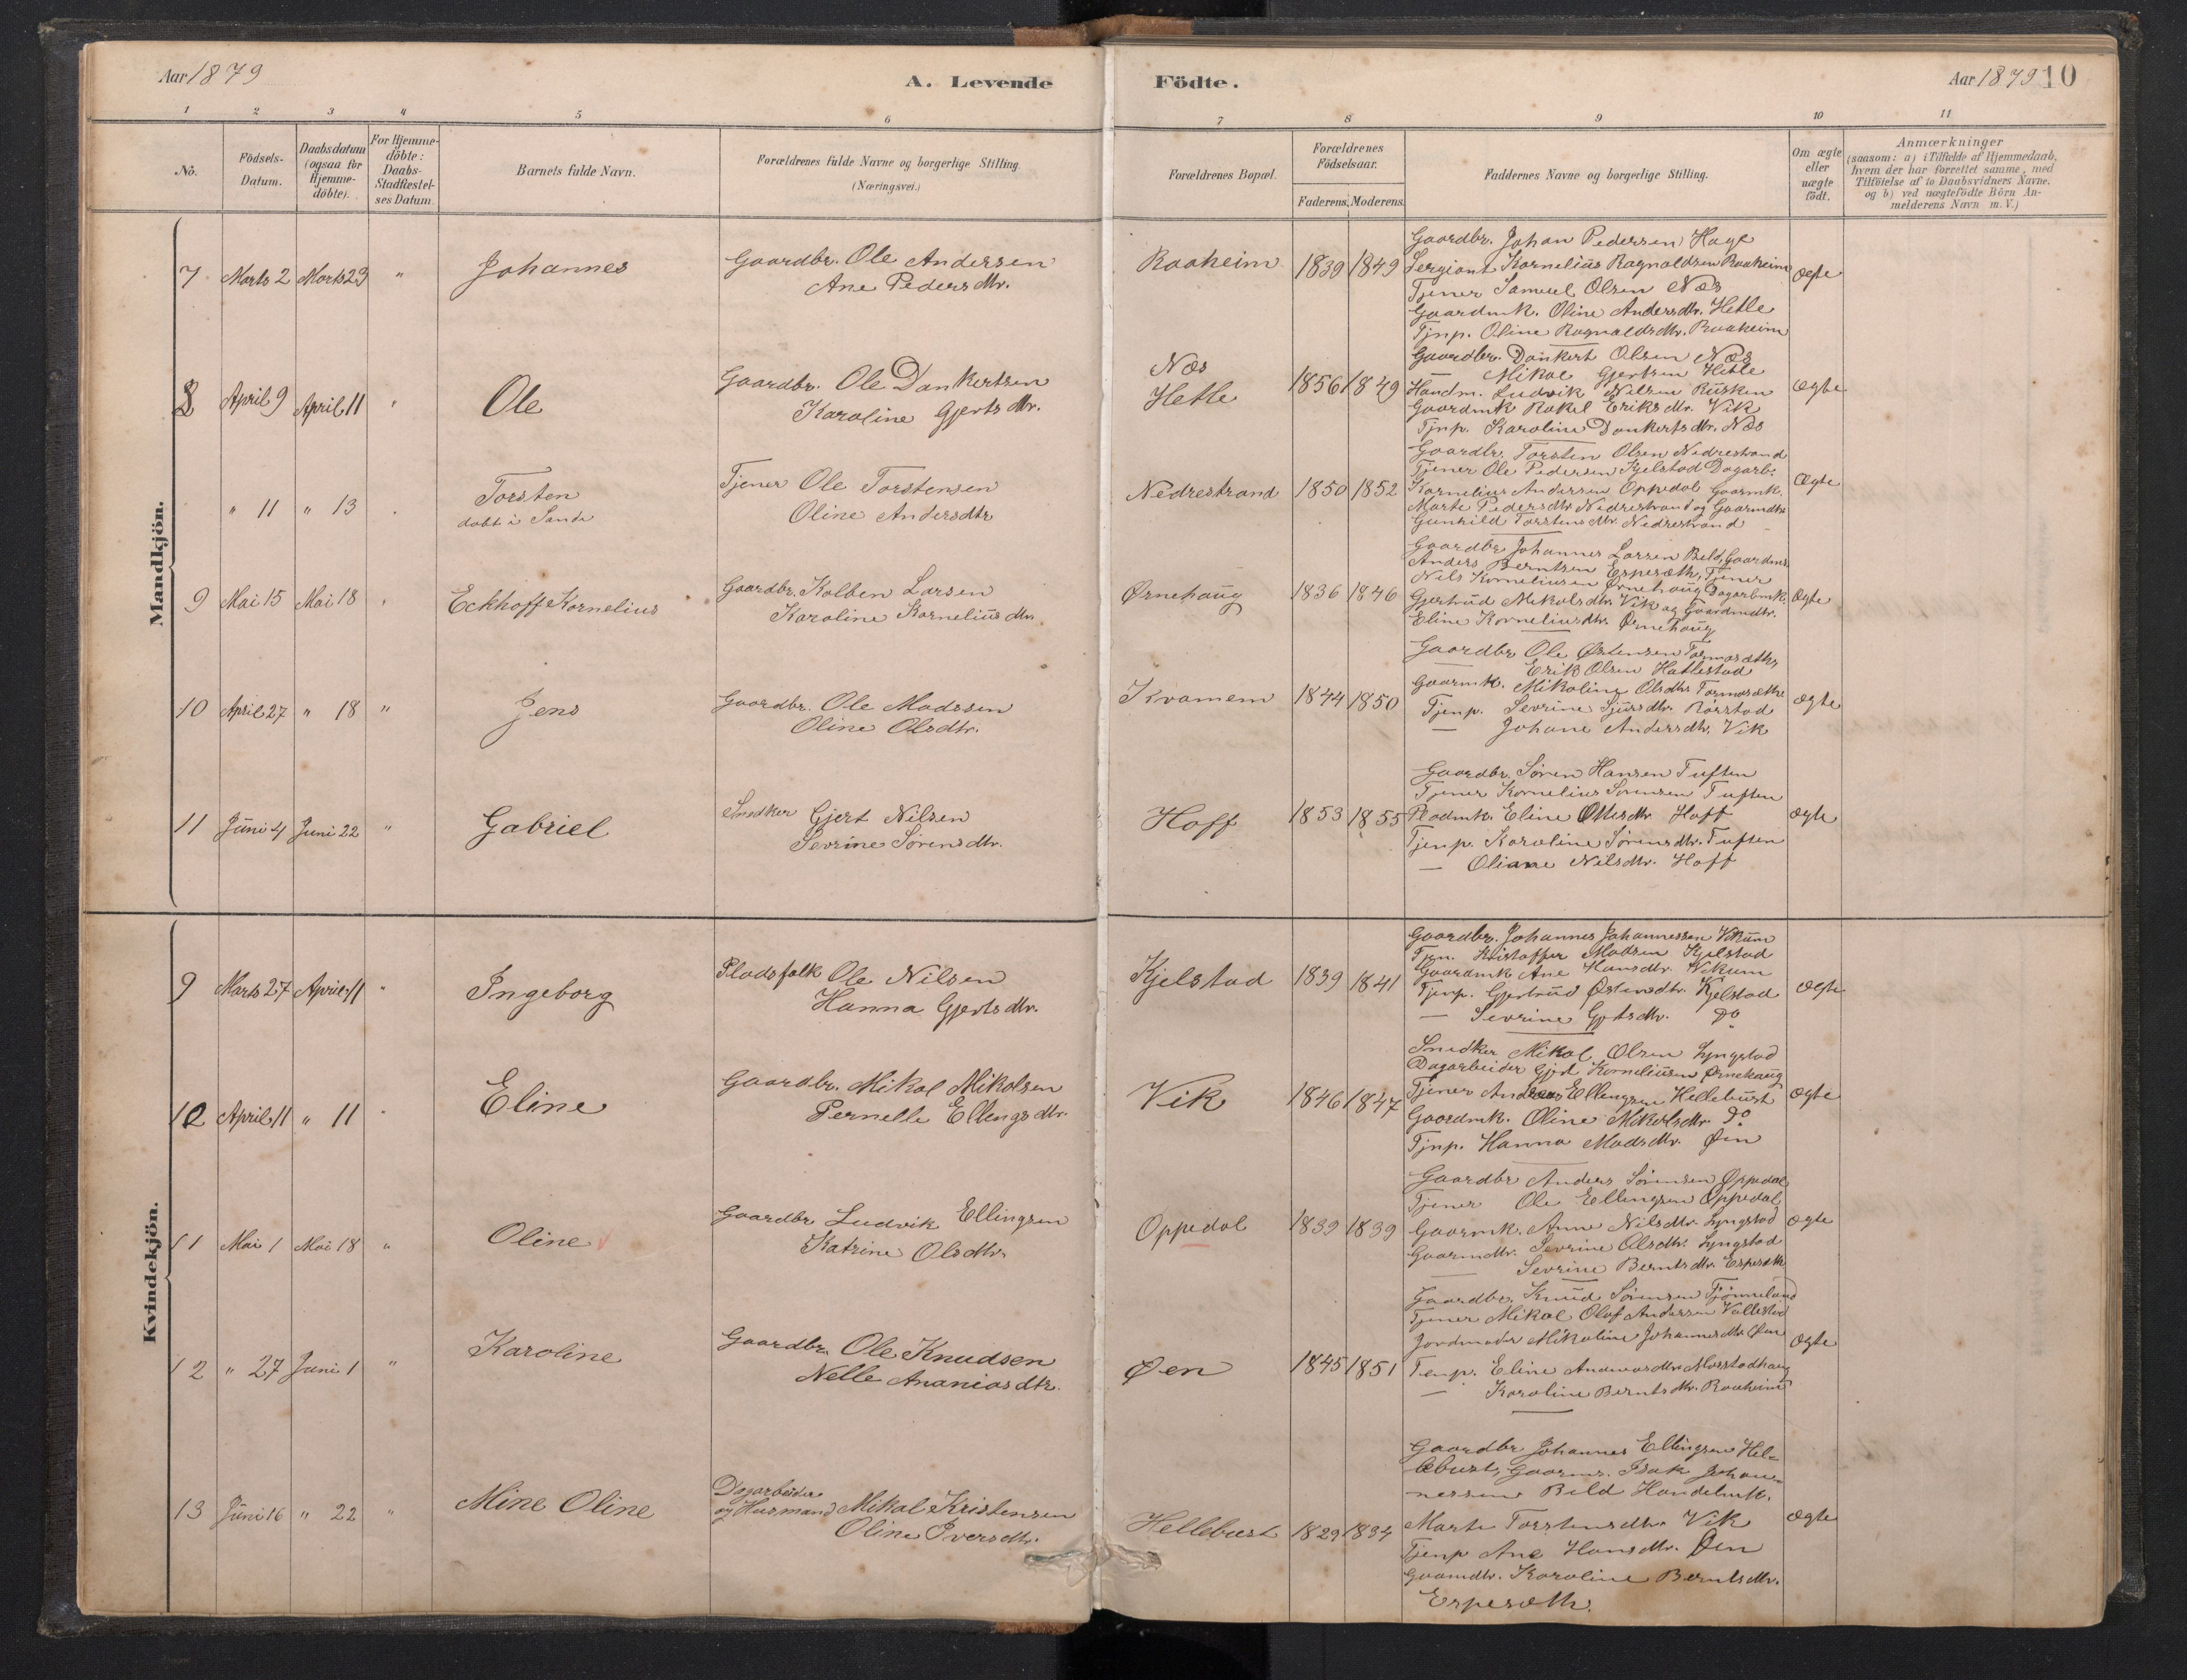 Aar 1879
A. Levende
Födte.
Aar 1879
10
1 2 3 4 5 6 7 8 9 10 11
No.
Födsels-
Datum.
Daabsdatum
(ogsaa for
Hjemme-
döbte).
For Hjemme-
döbte:
Daabs-
Stadfæstel-
ses Datum.
Barnets fulde Navn.
Forældrenes fulde Navne og borgerlige Stilling.
(Næringsvei.)
Forældrenes Bopæl.
Forældrenes
Födselsaar.
Faderens. Moderens.
Faddernes Navne og borgerlige Stilling.
Om ægte
eller
uægte
födt.
Anmærkninger
(saasom: a) i Tilfælde af Hjemmedaab,
hvem der har forrettet samme, med
Tilföielse af to Daabsvidners Navne.
og b) ved uægtefödte Börn An-
melderens Navn m. V.)
Mandkjön.
7 Marts 2 Marts 23 " Johannes
Gaardbr. Ole Andersen
Ane Pedersdtr.
Raaheim 1839 1849
Gaardbr. Johan Pedersen Hage
Sergiant Kornelius Ragnaldsen Raaheim
Tjener Samuel Olsen Næs
Gaardmk. Oline Andersdtr. Hetle
Tjnp. Oline Ragnaldsdtr. Raaheim
ægte
8 April 9 April 11 " Ole
Gaardbr. Ole Dankertsen
Karoline Gjertsdtr.
Næs
Hetle
1856 1849
Gaardbr. Dankert Olsen Næs
— Mikal Gjertsen Hetle
Huusm. Ludvik Nilsen Rusken
Gaardmk Rakel Eriksdtr. Vik
Tjnp. Karoline Dankertsdtr. Næs
ægte
" 11 " 13 . Torsten
døbt i Sande
Tjener Ole Torstensen
Oline Andersdtr
Nedrestrand 1850 1852
Gaardbr. Torsten Olsen Nedrestrand
Tjener Ole Pedersen Kjelstad Dagarb.
Kornelius Andersen Oppedal Gaarmk.
Marte Pedersdtr Nedrestrand og Gaarmdtr
Gunhild Torstensdtr. Nedrestrand
Ægte
9 Mai 15 Mai 18 " Eckhoff Kornelius
Gaardbr. Kolben Larsen
Karoline Korneliusdtr.
Ørnehaug 1836 1846
Gaardbr Johannes Larsen Beld, Gaardms.
Anders Berntsen Espesæth, Tjener
Nils Korneliusen Ørnehaug Dagarbmk.
Gjertrud Mikalsdtr. Vik og Gaardmdtr.
Eline Korneliusdtr. Ørnehaug
Ægte
10 April 27 " 18 " Jens
Gaardbr. Ole Madssen
Oline Olsdtr.
Kvamem 1844 1850
Gaardbr Ole Østensen Tormosæth,
— Erik Olsen Hatlestad
Gaarmk. Mikoline Olsdtr Tormosæth
Tjenp. Sevrine Sjursdtr. Rørstad
— Johane Andersdtr. Vik
ægte
11 Juni 4 Juni 22 " Gabriel
Snedker Gjert Nilsen
Sevrine Sørensdtr.
Hoff 1853 1855
Gaardbr. Søren Hansen Tuften
Tjener Kornelius Sørensen Tuften
Pladmk. Eline Ottesdtr. Hoff
Tjenp. Karoline Sørensdtr. Tuften
— Oliane Nilsdtr. Hoff
ægte
Kvindekjön.
9 Marts 27 April 11 " Ingeborg
Pladsfolk Ole Nilsen
Hanna Gjertsdtr.
Kjelstad 1839 1841
Gaardbr. Johannes Johannessen Vikum
Tjen. Kristoffer Madsen Kjelstad
Gaardmk Ane Hansdtr. Vikum
Tjenp. Gjertrud Østensdtr. Kjelstad
— Sevrine Gjertsdtr. Do
ægte
10 April 11 " 11 " Eline
Gaardbr. Mikal Mikalsen
Pernelle Ellingsdtr.
Vik 1846 1847
Snedker Mikal Olsen Lyngstad
Dagarbeider Gjert Korneliusen Ørnehaug
Tjener Andreas Ellingsen Hellebust
Gaardmk. Oline Mikalsdtr. Do
Tjnp. Hanna Madsdtr. Øen
Ægte
11 Mai 1 Mai 18 " Oline
Gaardbr Ludvik Ellingsen
Katrine Olsdtr.
Oppedal 1839 1839
Gaardbr Anders Sørensen Oppedal
Tjener Ole Ellingsen Oppedal
Gaarmk. Anne Nilsdtr. Lyngstad
Gaarmdtr. Sevrine Olsdtr. Lyngstad
— Sevrine Berntsdtr. Espesæth
ægte
12 " 27 Juni 1 " Karoline
Gaardbr. Ole Knudsen
Nelle Ananiasdtr.
Øen 1845 1851
Gaardbr. Knud Sørensen Tjønneland
Tjener Mikal Olaf Andersen Vallestad
Jordmoder Mikoline Johannesdtr. Øen
Tenp. Eline Ananiasdtr Mørstadhaug
— Karoline Berntsdtr. Raaheim
ægte
13 Juni 16 " 22 " Mine Oline
Dagarbeider
og Husmand Mikal Kristensen
Oline Iversdtr.
Hellebust 1829 1834
Gaardbr Johannes Ellingsen Hel-
lebust, Gaarms. Isak Johan-
nessen Beld Handelmk.
Marte Torstensdtr. Vik
Tjenp Ane Hansdtr. Øen
Gaamdtr. Karoline Berntsdtr.
Espesæth.
ægte